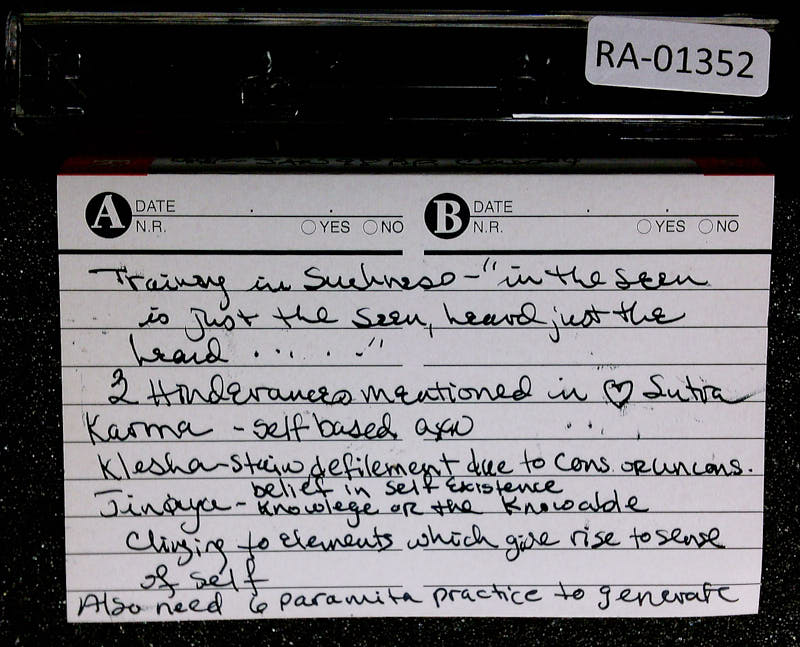 RA-01352
A DATE B DATE
N.R. YES NO N.R. YES NO
Training in Suchness - "in the seen
is just the seen, heard just the
heard ..... "
Hinderances mentioned in ♡ Sutra
Karma - self based axn ...
Klesha - Stain defilement due to cons. or uncons.
belief in self existence
Jinaya - Knowlege or the Knowable
Clinging to elements which give rise to sense
of self
Also need 6 paramita practice to generate